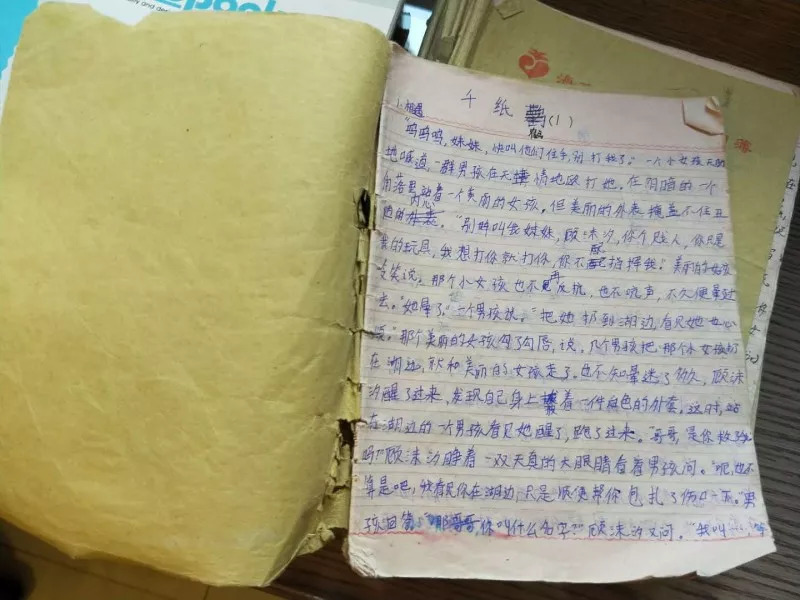 千纸鹤(1)
1.相遇
"呜呜呜,妹妹,快叫他们住手,别打我了。"一个小女孩天真
地哑道,一群男孩在无情地踢打她。在阴暗的一个
角落里站着一个美丽的女孩,但美丽的外表掩盖不住丑
陋的内心。"别叫我妹妹,顾沫汐,你个贱人,你只是
我的玩具,我想打你就打你,你不配指挥我。"美丽的女孩
笑说,那个小女孩也不再反抗,也不吭声,不久便晕过
去。"她晕了。"一个男孩说。"把她扔到湖边,看见她
烦。"那个美丽的女孩勾了勾唇,说,几个男孩把那个女孩扔
在湖边,就和美丽的女孩走了。也不知晕迷了多久,顾沫
汐醒了过来,发现自己身上披着一件白色的外套。这时,站
在湖边的一个男孩看见她醒了,跑了过来。"哥哥,是你救我
吗?"顾沫汐睁着一双天真的大眼睛看着男孩问。"呃,也不
算是吧,我看见你在湖边,只是顺便帮你包扎了伤口一下。"男
孩回答。"那哥哥,你叫什么名字?"顾沫汐又问。"我叫